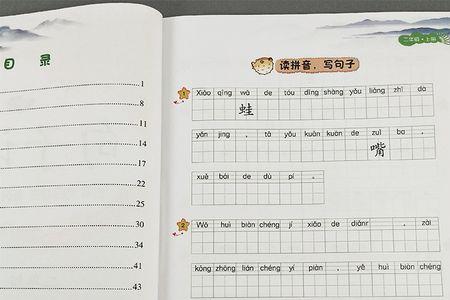 目 录
1
8
11
14
17
22
25
30
34
41
43
二年级·上册
读拼音，写句子
1
Xiǎo qīng wā de tóu dǐng shàng yǒu liǎng zhī dà
蛙
yǎn jing , tā yǒu kuān kuān de zuǐ ba 。
嘴
xuě bái de dù pí 。
2
Wǒ huì biàn chéng jí xiǎo de diǎnr , zài
kōng zhōng lián chéng yí piàn , yě huì biàn chéng